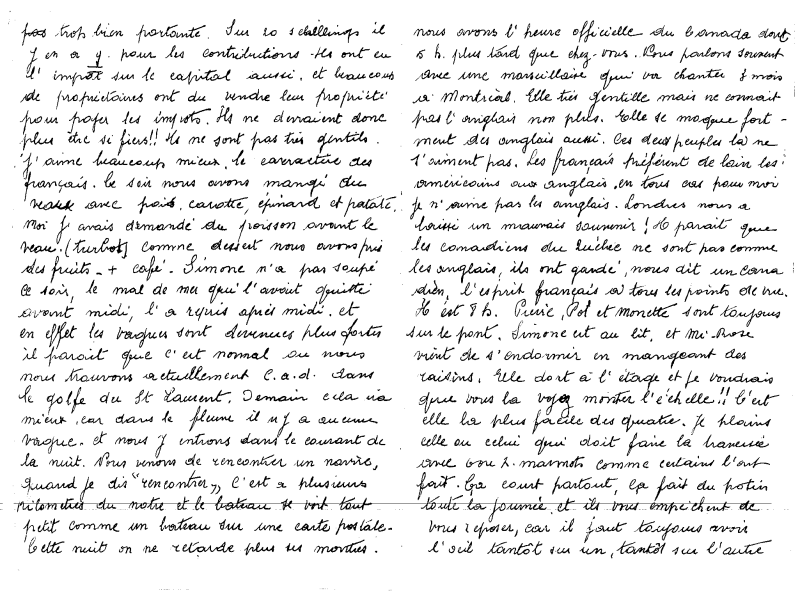 pas trop bien portante. Sur 20 schellings il
y en a 9. pour les contributions. Ils ont eu
l' impôt sur le capital aussi. et beaucoup
de propriétaires ont du vendre leur propriété
pour payer les impots. Ils ne devraient donc
plus être si fiers!! Ils ne sont pas très gentils.
J'aime beaucoup mieux, le caractère des
français. Ce soir nous avons mangé du
veau avec pois, carotte, épinard et patate.
Moi j'avais demandé du poisson avant le
veau. (turbot) comme dessert nous avons pris
des fruits - + café. Simone n'a pas soupé
ce soir, le mal de mer qui l'avait quitté
avant midi, l'a repris après midi. et
en effet les vagues sont devenues plus fortes
il parait que c'est normal ou nous
nous trouvons actuellement c.a.d. dans
le golfe du St Laurent. Demain cela ira
mieux, car dans le fleuve il n'y a aucune
vague. et nous y entrons dans le courant de
la nuit. Nous venons de rencontrer un navire,
quand je dis "rencontrer,, c'est a plusieurs
kilomètres du notre et le bateau se voit tout
petit comme un bateau sur une carte postale.
Cette nuit on ne retarde plus ses montres.
nous avons l'heure officielle du Canada dont
5 h. plus tard que chez-vous. Nous parlons souvent
avec une marseillaise qui va chanter 8 mois
à Montréal. Elle très gentille mais ne connait
pas l'anglais non plus. Elle se moque fort-
ment des anglais aussi. Ces deux peuples là ne
s'aiment pas. Les français préfèrent de loin les
américains aux anglais, en tous cas pour moi
je n'aime pas les anglais. Londres nous a
laissé un mauvais souvenir! Il parait que
les canadiens du Québec ne sont pas comme
les anglais, ils ont gardé, nous dit un cana
dien, l'esprit français à tous les points de vue.
Il est 8 h. Pierre, Pol et Monette sont toujours
sur le pont. Simone est au lit, et Mi-Rose
vient de s'endormir en mangeant des
raisins. Elle dort à l'étage et je voudrais
que vous la voyez monter l'échelle!! C'est
elle la plus facile des quatre. Je plains
celle ou celui qui doit faire la traversée
avec 2. marmots comme certains l'ont
fait. Ça court partout, ça fait du potin
toute la journée, et ils vous empêchent de
vous reposer, car il faut toujours avoir
l'oeil tantôt sur un, tantôt sur l'autre